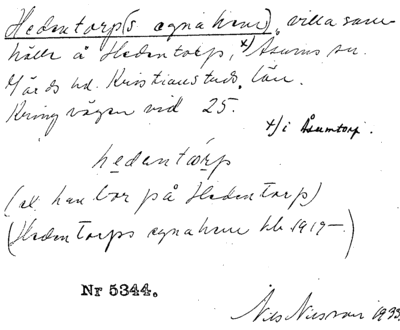 Hedentorp(s egnahem), villa sam-
hälle å Hedentorp, x) Åsums sn.
Gärds hd. Kristianstads län.
Kring vägen vid 25.
x) i Åsumtorp.
hedentørp
(ex. han bor på Hedentorp)
(Hedentorps egnahem bb 1919-)
Nr 5344.
Nils Nilsson 1933.